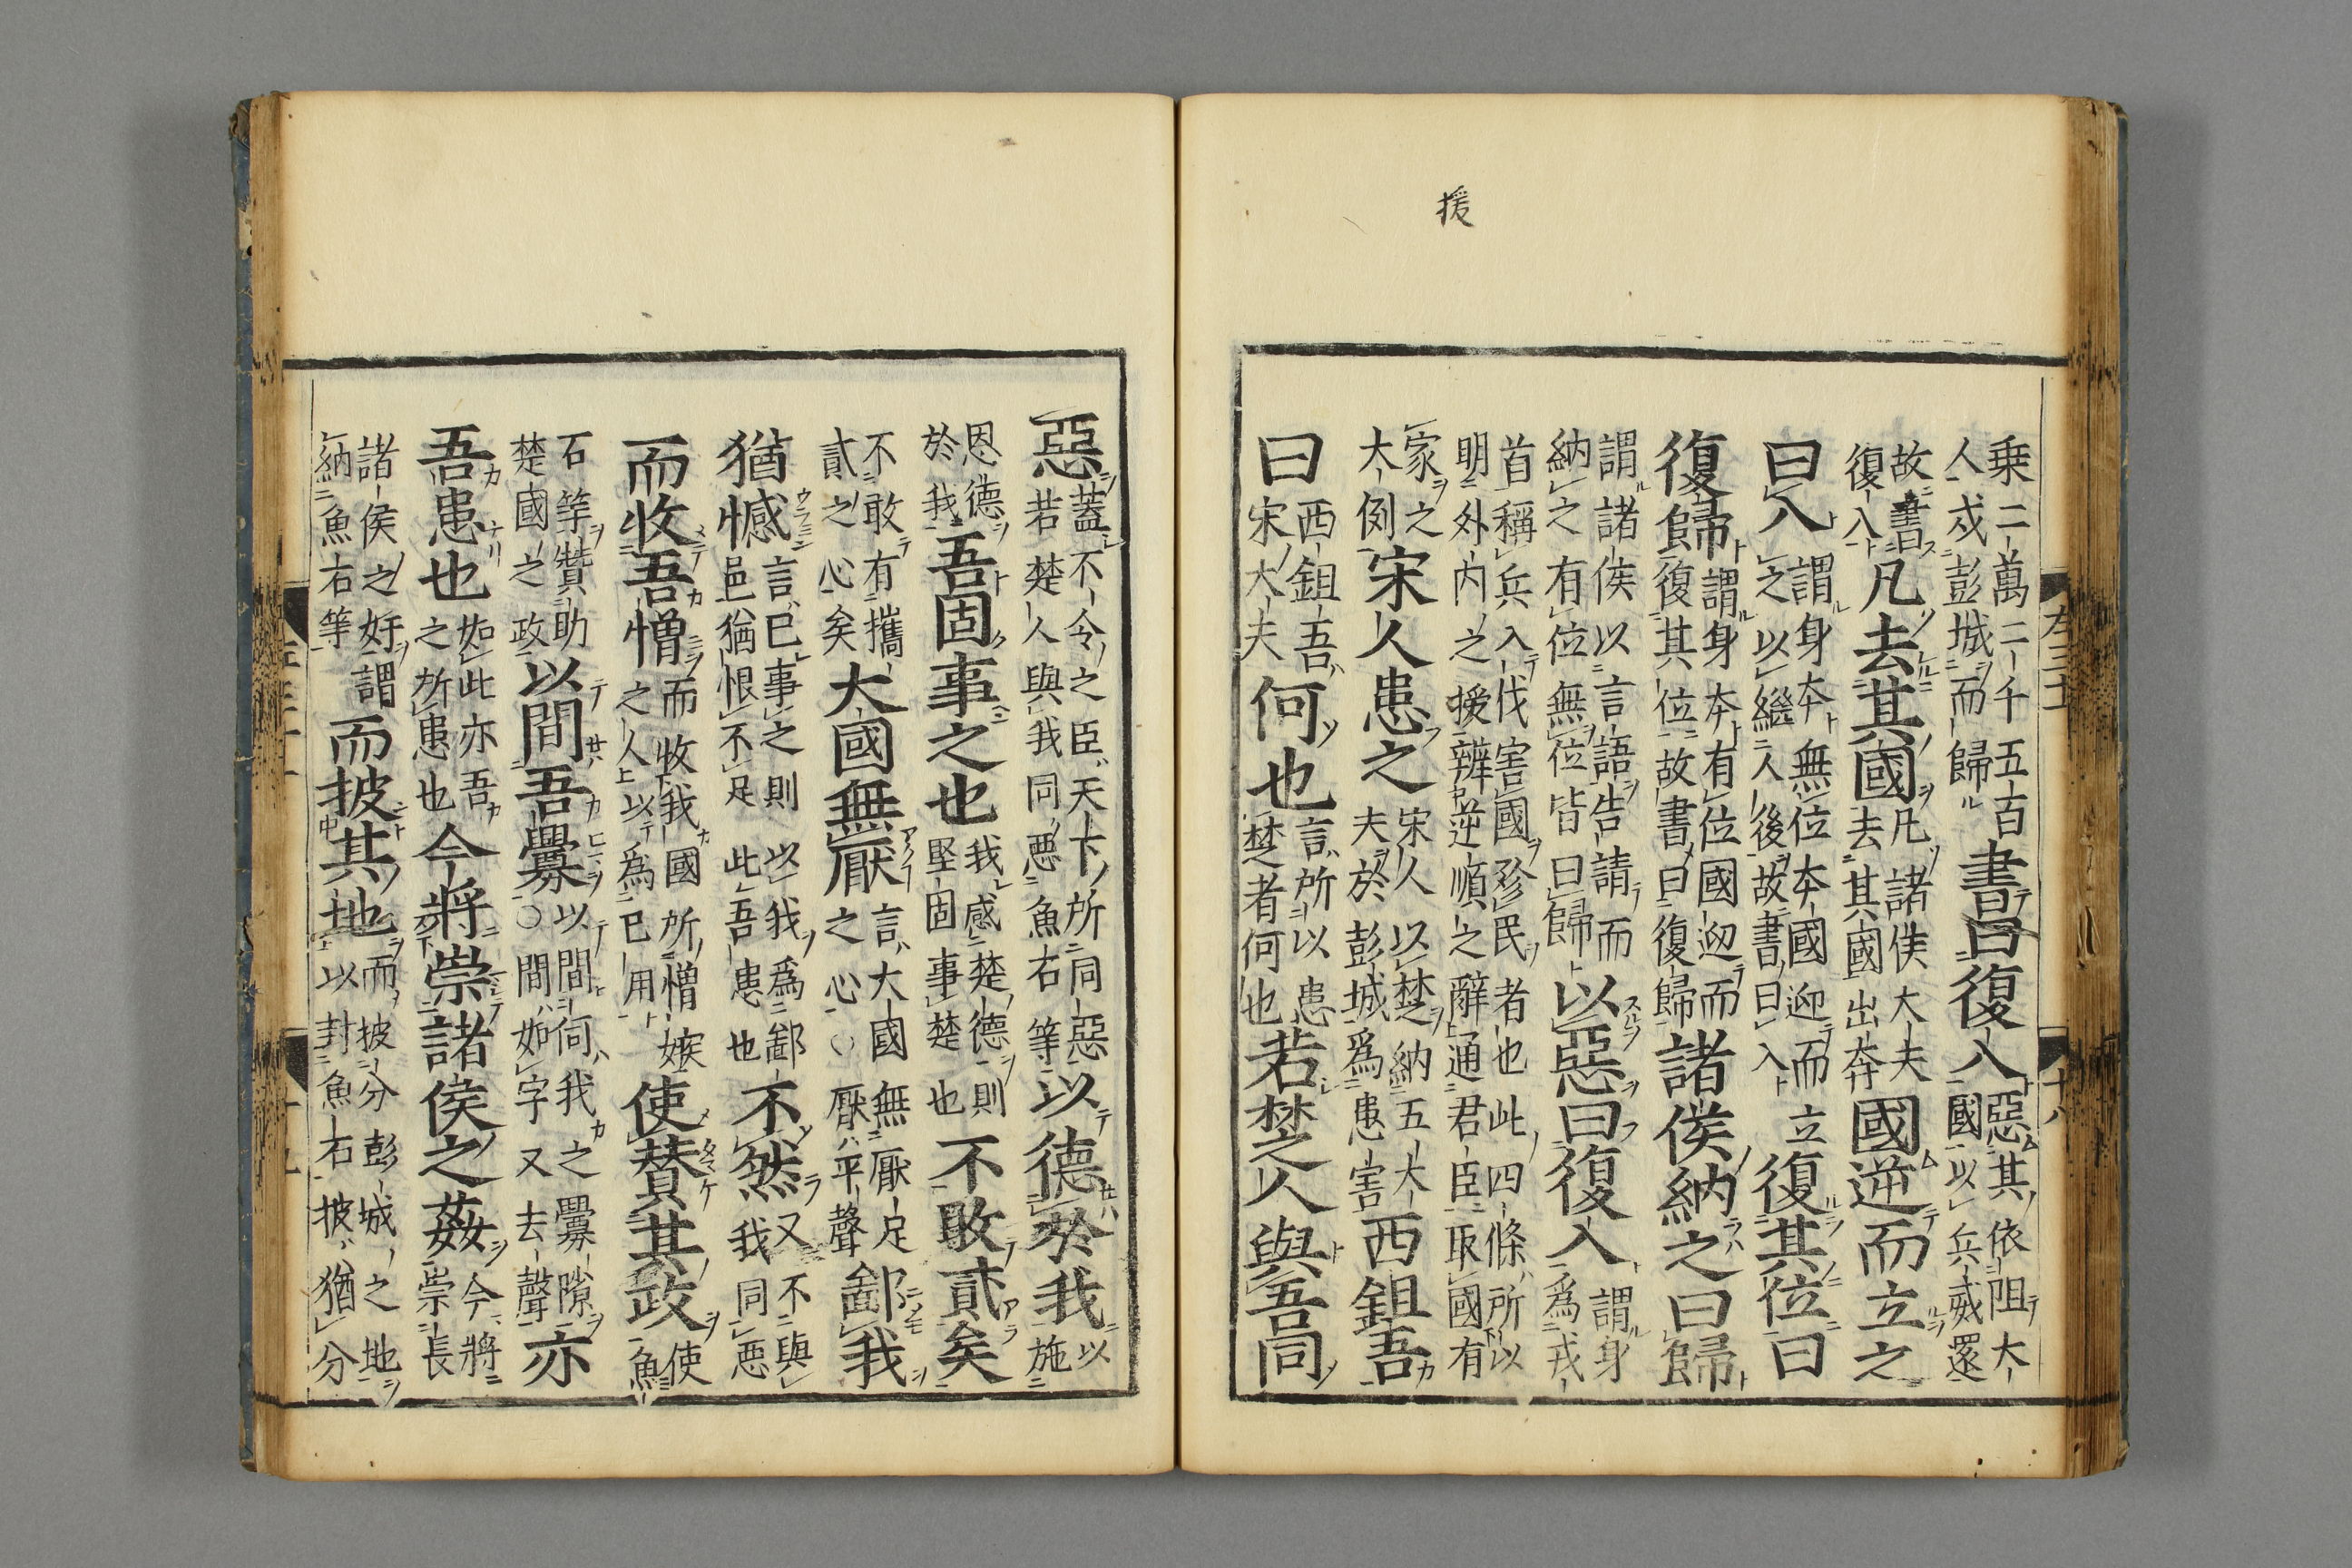 援
乗二萬二千五百人戍彭城而歸書曰復入惡其依阻大國以兵威還
故書復入凡去其國凡諸侯大夫去其國出奔國逆而立之
曰入謂身本無位本國迎而立之以繼人後故書曰入復其位曰
復歸謂身本有位國迎而復其位故書曰復歸諸侯納之曰歸
謂諸侯以言語告請而納之有位無位皆曰歸以惡曰復入謂身爲戎
首稱兵入伐害國殄民者也此四條所以明外内之援辨逆順之辭通君臣取國有
家之大例宋人患之宋人以楚納五大夫於彭城爲患害西鉏吾
曰西鉏吾宋大夫何也言所以患楚者何也若楚人與吾同
惡蓋不令之臣天下所同惡若楚人與我同惡魚石等以德於我以施
恩德於我吾固事之也我感楚德則堅固事楚也不敢貳矣
不敢有攜貳之心矣大國無厭言大國無厭足之心○厭平聲鄙我
猶憾言已事之則以我爲鄙邑猶恨不足此吾患也不然又不與我同惡
而收吾憎而收我國所憎嫉之人以爲已用使賛其政使魚
石等賛助楚國之政以間吾釁以間伺我之釁隙○間如字又去聲亦
吾患也如此亦吾之所患也今將崇諸侯之姦今將崇長
諸侯之好謂納魚石等而披其地而披分彭城之地以封魚石披猶分